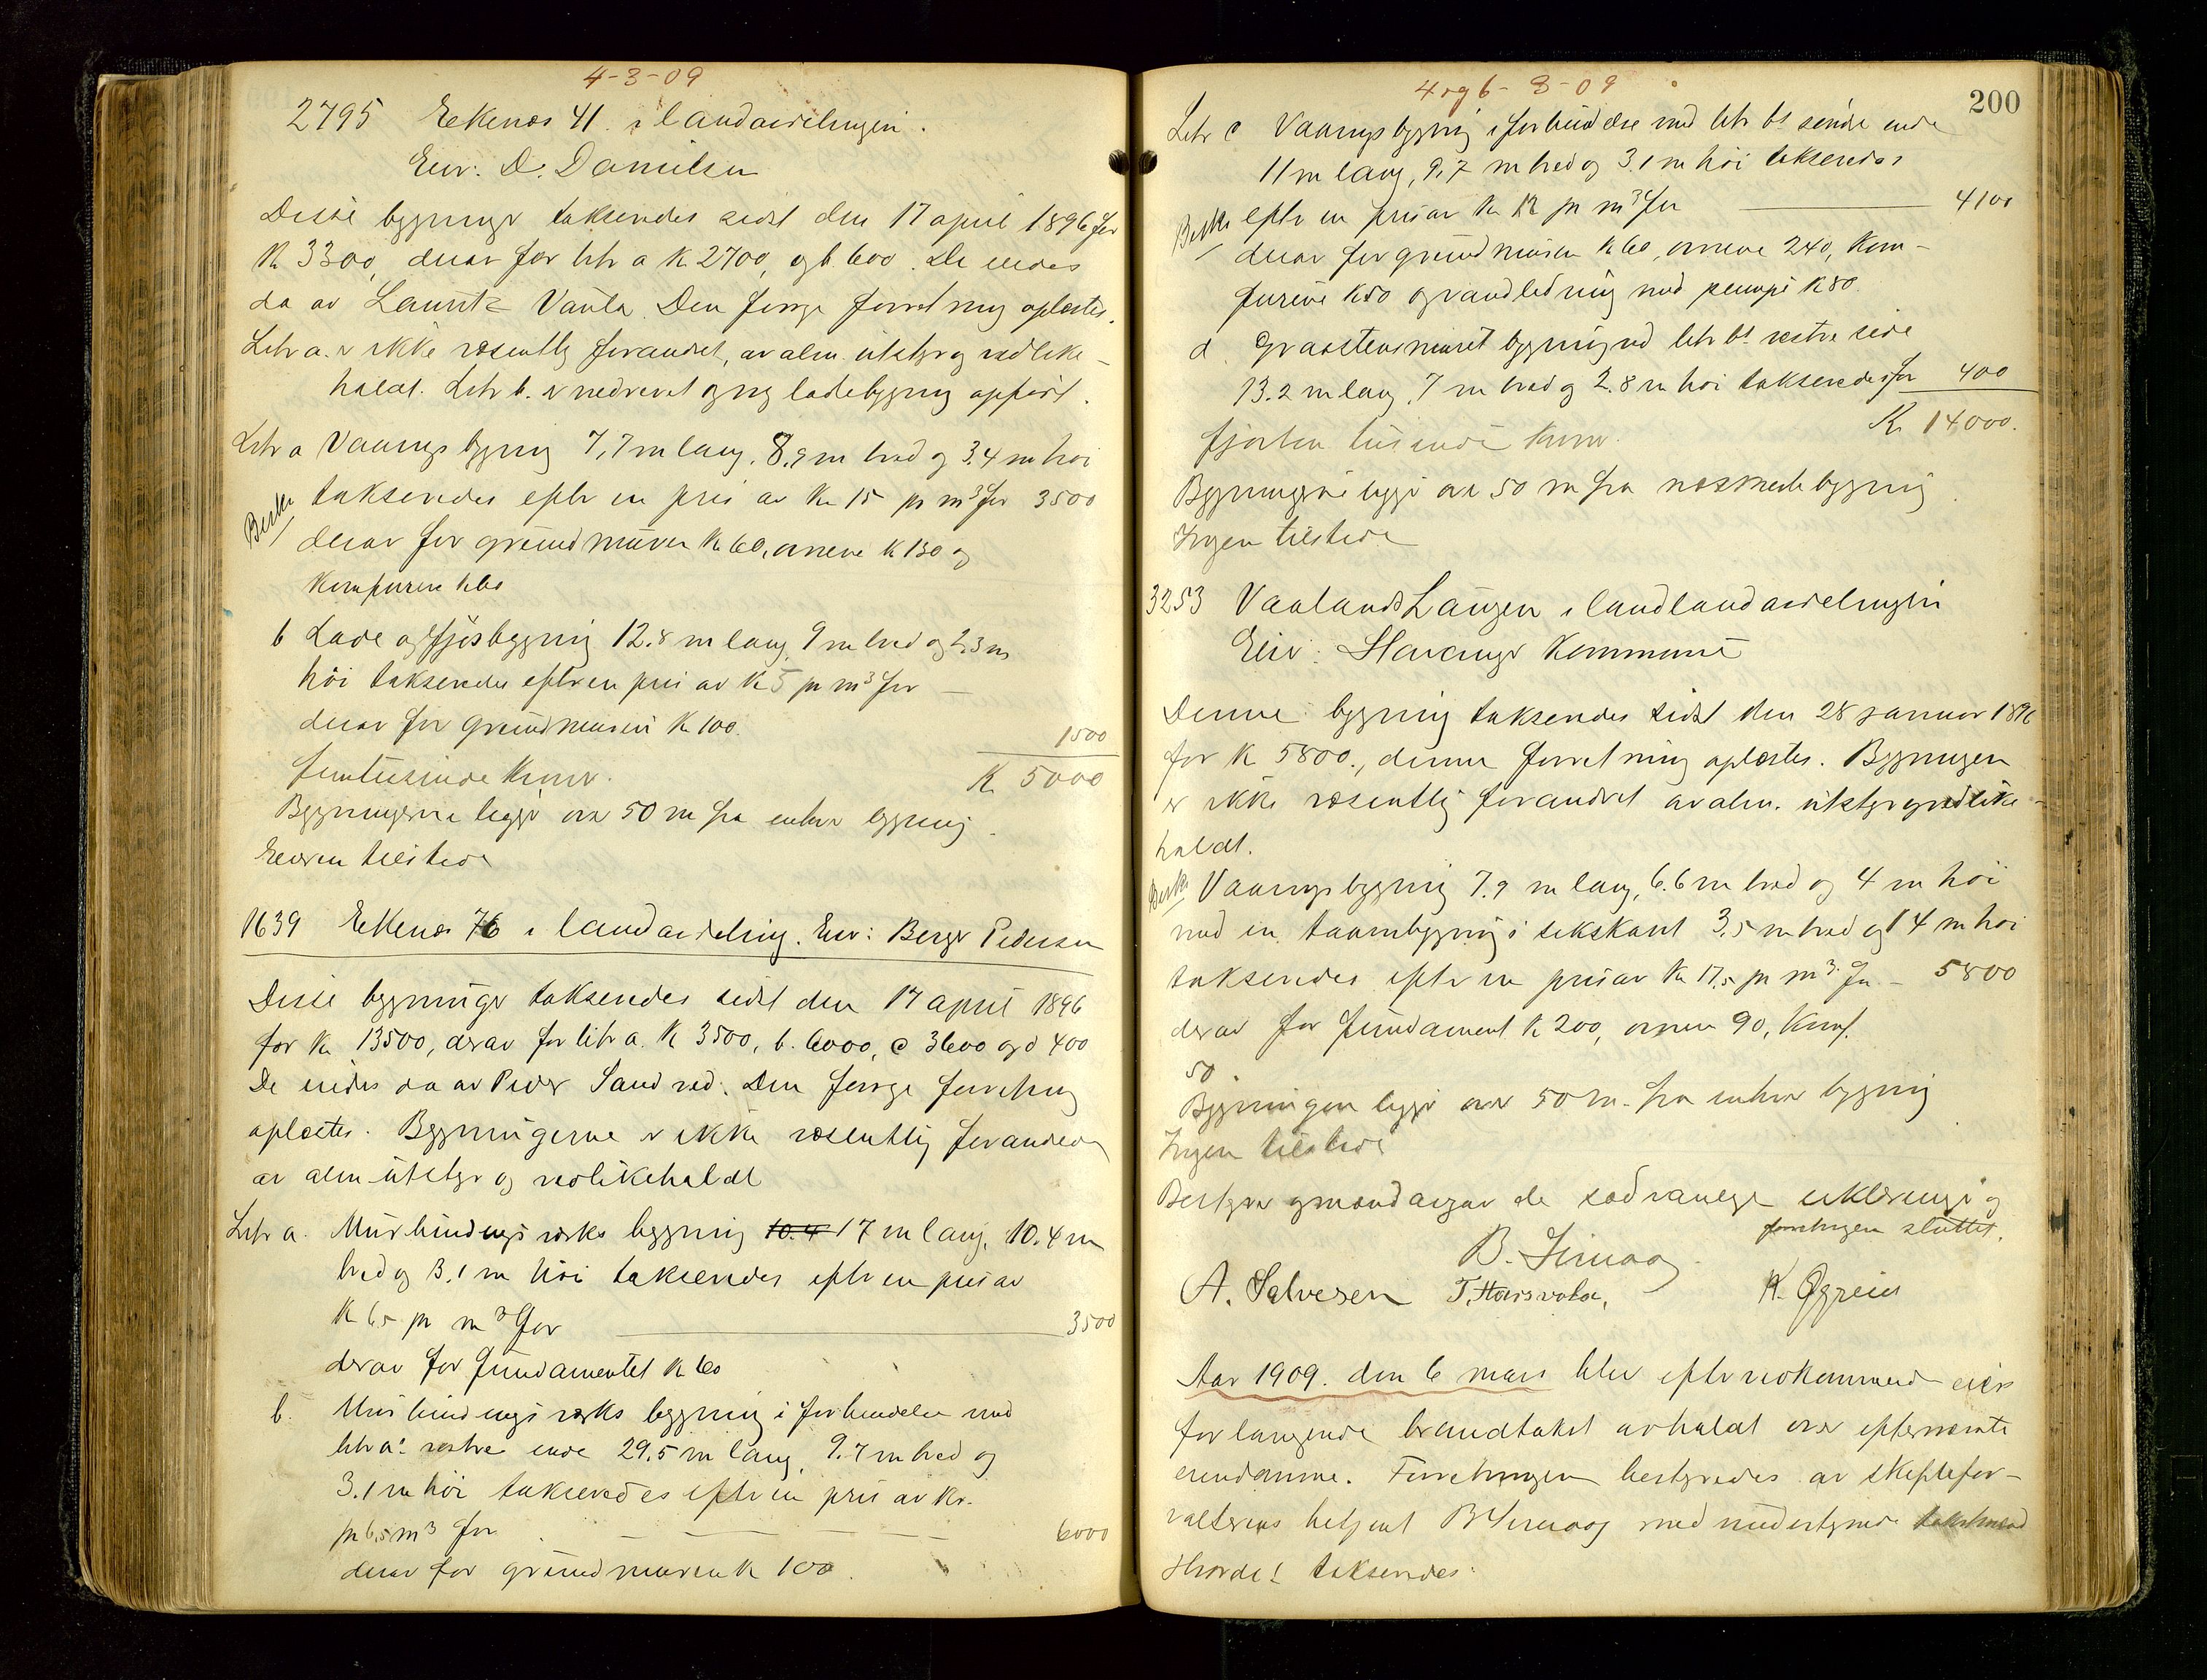 4-3-09
2795 Eekenæs 41 i landavdelingen.
Eier: D. Danielsen
Disse bygninger takseredes sidst den 17 april 1896 for
K 3300, derav for litr a K 2700, og b. 600. De eiedes
da av Lauritz Vaula. Den forrige forretning oplæstes.
Litr a. er ikke væsentlig forandret, av alm. utstyr og vedlike-
holdt. Litr b. er nedrevet og ny ladebygning opført.
Litr a Vaaningsbygning 7,7 m lang, 8.9 m bred og 3.4 m høi
takseredes efter en pris av Kr 15 pr m³ for 3500
derav for grundmuren K 60, ovnene K 130 og
Komfuren K 60
b Lade og fjøsbygning 12.8 m lang, 9 m bred og 2,3 m
høi takseredes efter en pris av K 5 pr m³ for —
derav for grundmuren K 100. 1500
femtusinde kroner. K 5000
Bygningerne ligger over 50 m fra enhver bygning.
Eieren tilstede
1639 Eekenæs 76 i landavdeling. Eier: Berger Pedersen
Disse bygninger takseredes sidst den 17 april 1896
for Kr 13500, derav for litr a. K 3500, b. 6000, c 3600 og d 400
De eiedes da av Peder Sandved. Den forrige forretning
oplæstes. Bygningerne er ikke væsentlig forandret
av alm utstyr og vedlikeholdt
Litr a. Murbindingsverks bygning 10.4 17 m lang, 10.4 m
bred og 3.1 m høi takseredes efter en pris av
K 6,5 pr m³ for 3500
derav for fundamentet K 60
b. Murbindingsverks bygning i forbindelse med
litr a's vestre ende 29.5 m lang, 9.7 m bred og
3.1 m høi takseredes efter en pris av Kr.
pr 6,5 m³ for 6000
derav for grundmuren K 100.
4 og 6-3-09
200
Litr c Vaaningsbygning i forbindelse med litr b's søndre ende
11 m lang, 9,7 m bred og 3.1 m høi takseredes
efter en pris av Kr 12 pr m³ for 4100
derav for grundmuren K 60, ovnene 240, Kom-
furene K 50 og vandledning med pumpe K 80.
d. Graastensmuret bygning ved litr b's vestre side
13.2 m lang, 7 m bred og 2.8 m høi takseredes for 400
fjorten tusinde kroner. K 14000.
Bygningerne ligger over 50 m fra næsmeste bygning
Ingen tilstede
3253 Vaalands Haugen i landavdelingen
Eier: Stavanger Kommune
Denne bygning takseredes sidst den 28 januar 1896
for K 5800., denne forretning oplæstes. Bygningen
er ikke væsentlig forandret av alm. utstyr og vedlike-
holdt.
Vaaningsbygning 7.9 m lang, 6.6 m bred og 4 m høi
med en taarnbygning i sekskant 3,5 m bred og 14 m høi
takseredes efter en pris av Kr 17,5 pr m³ for – 5800
derav for fundament K 200, ovnen 90, Komf.
50
Bygningen ligger over 50 m. fra enhver bygning
Ingen tilstede
Bestyrer og mænd avgav de sædvanlige erklæringer og
forretningen sluttet.
A. Salvesen
Aar 1909. den 6 mars blev efter vedkommende eiers
forlangende brandtakst avholdt over efternævnte
eiendomme. Forretningen bestyredes av skiftefor-
valterens betjent med undertegnede takstmænd
Hvorda! takseredes: